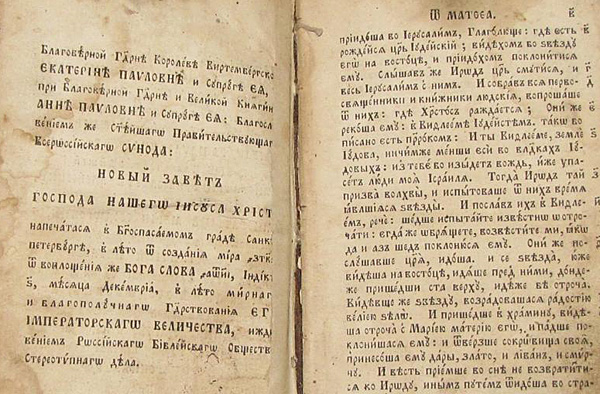 Благовѣрной Гдⷭ҇рнѣ Королевѣ Виртембергско
ЕКАТЕРІНѢ ПАѴЛОВНѢ и Сꙋпрꙋгѣ ЕѦ,
при Благовѣрной Гдⷭ҇рнѣ и Великой Кнѧгин
АННѢ ПАѴЛОВНѢ и Сꙋпрꙋгѣ ЕѦ: Благосл
веніемъ же Стѣйшагѡ Правительствꙋющаг
Всерѡссійскагѡ Сѵнода:
НОВЫЙ ЗАВѢТЪ
ГОСПОДА НАШЕГѠ ІИСꙊСА ХРІСТ
напечатасѧ в Бг҃оспасаемомъ градѣ Санк
петербꙋргѣ, в лѣто ѿ созданіѧ міра
ѿ воплощеніѧ же БОГА СЛОВА
мѣсѧца Декемвріа, в лѣто мирнаг
и благополꙋчнагѡ Гдⷭ҇рствованіѧ ЕГ
ІМПЕРАТОРСКАГѠ ВЕЛИЧЕСТВА, ижд
веніемъ Рѡссійскагѡ Бівлейскагѡ Обществ
Стереотѵпнагѡ дѣла.
Ѿ МАТѲЕА.
пріидоша во Іерꙋсалимъ, Глаголюще: гдѣ есть
рождейсѧ цр҃ь Іꙋдейскій; видѣхомъ бо ѕвѣздꙋ
егѡ на востоцѣ, и пріидохомъ поклонитисѧ
емꙋ. Слышавъ же Иродъ цр҃ь смѧтисѧ, и
весь Іерꙋсалимъ с нимъ. И собравъ всѧ перво
свѧщенники и книжники людскіѧ, вопрошаше
ѿ нихъ: гдѣ Хрⷭ҇тосъ раждаетсѧ; Они же
рекоша емꙋ: в Виѳлеемѣ Іꙋдейстѣмъ. такѡ бо
писано есть прⷪ҇рокомъ: И ты Виѳлееме, земле
Іꙋдова, ничимже менши еси во влⷣкахъ Іꙋ
довыхъ: из тебе бо изыдетъ вождь, иже ꙋпа
сетъ люди моѧ Ісраилѧ. Тогда Иродъ тай
призва волхвы, и испытоваше ѿ нихъ времѧ
ꙗвльшіѧсѧ ѕвѣзды. И пославъ ихъ в Виѳле
емъ, рече: шедше испытайте извѣстнѡ ѡ отро
чати: егда же ѡбрѧщете, возвѣстите ми, ꙗкѡ
да и азъ шедъ поклонюсѧ емꙋ. Они же по
слꙋшавше цр҃ѧ, идоша. и се ѕвѣзда, юже
видѣша на востоцѣ, идѧше пред ними, донде
же пришедши ста верхꙋ, идѣже бѣ отроча.
Видѣвше же ѕвѣздꙋ, возрадовашасѧ радостію
веліею ѕѣлѡ. И пришедше в храминꙋ, видѣ
ша отроча с Маріею матерію егѡ, и падше по
клонишасѧ емꙋ: и ѿверзше сокрѡвища своѧ,
принесоша емꙋ дары, злато, и ліванъ, и смѵр
нꙋ. И вѣсть пріемше во снѣ не возвратити
сѧ ко Иродꙋ, инымъ пꙋтемъ ѿидоша во стра